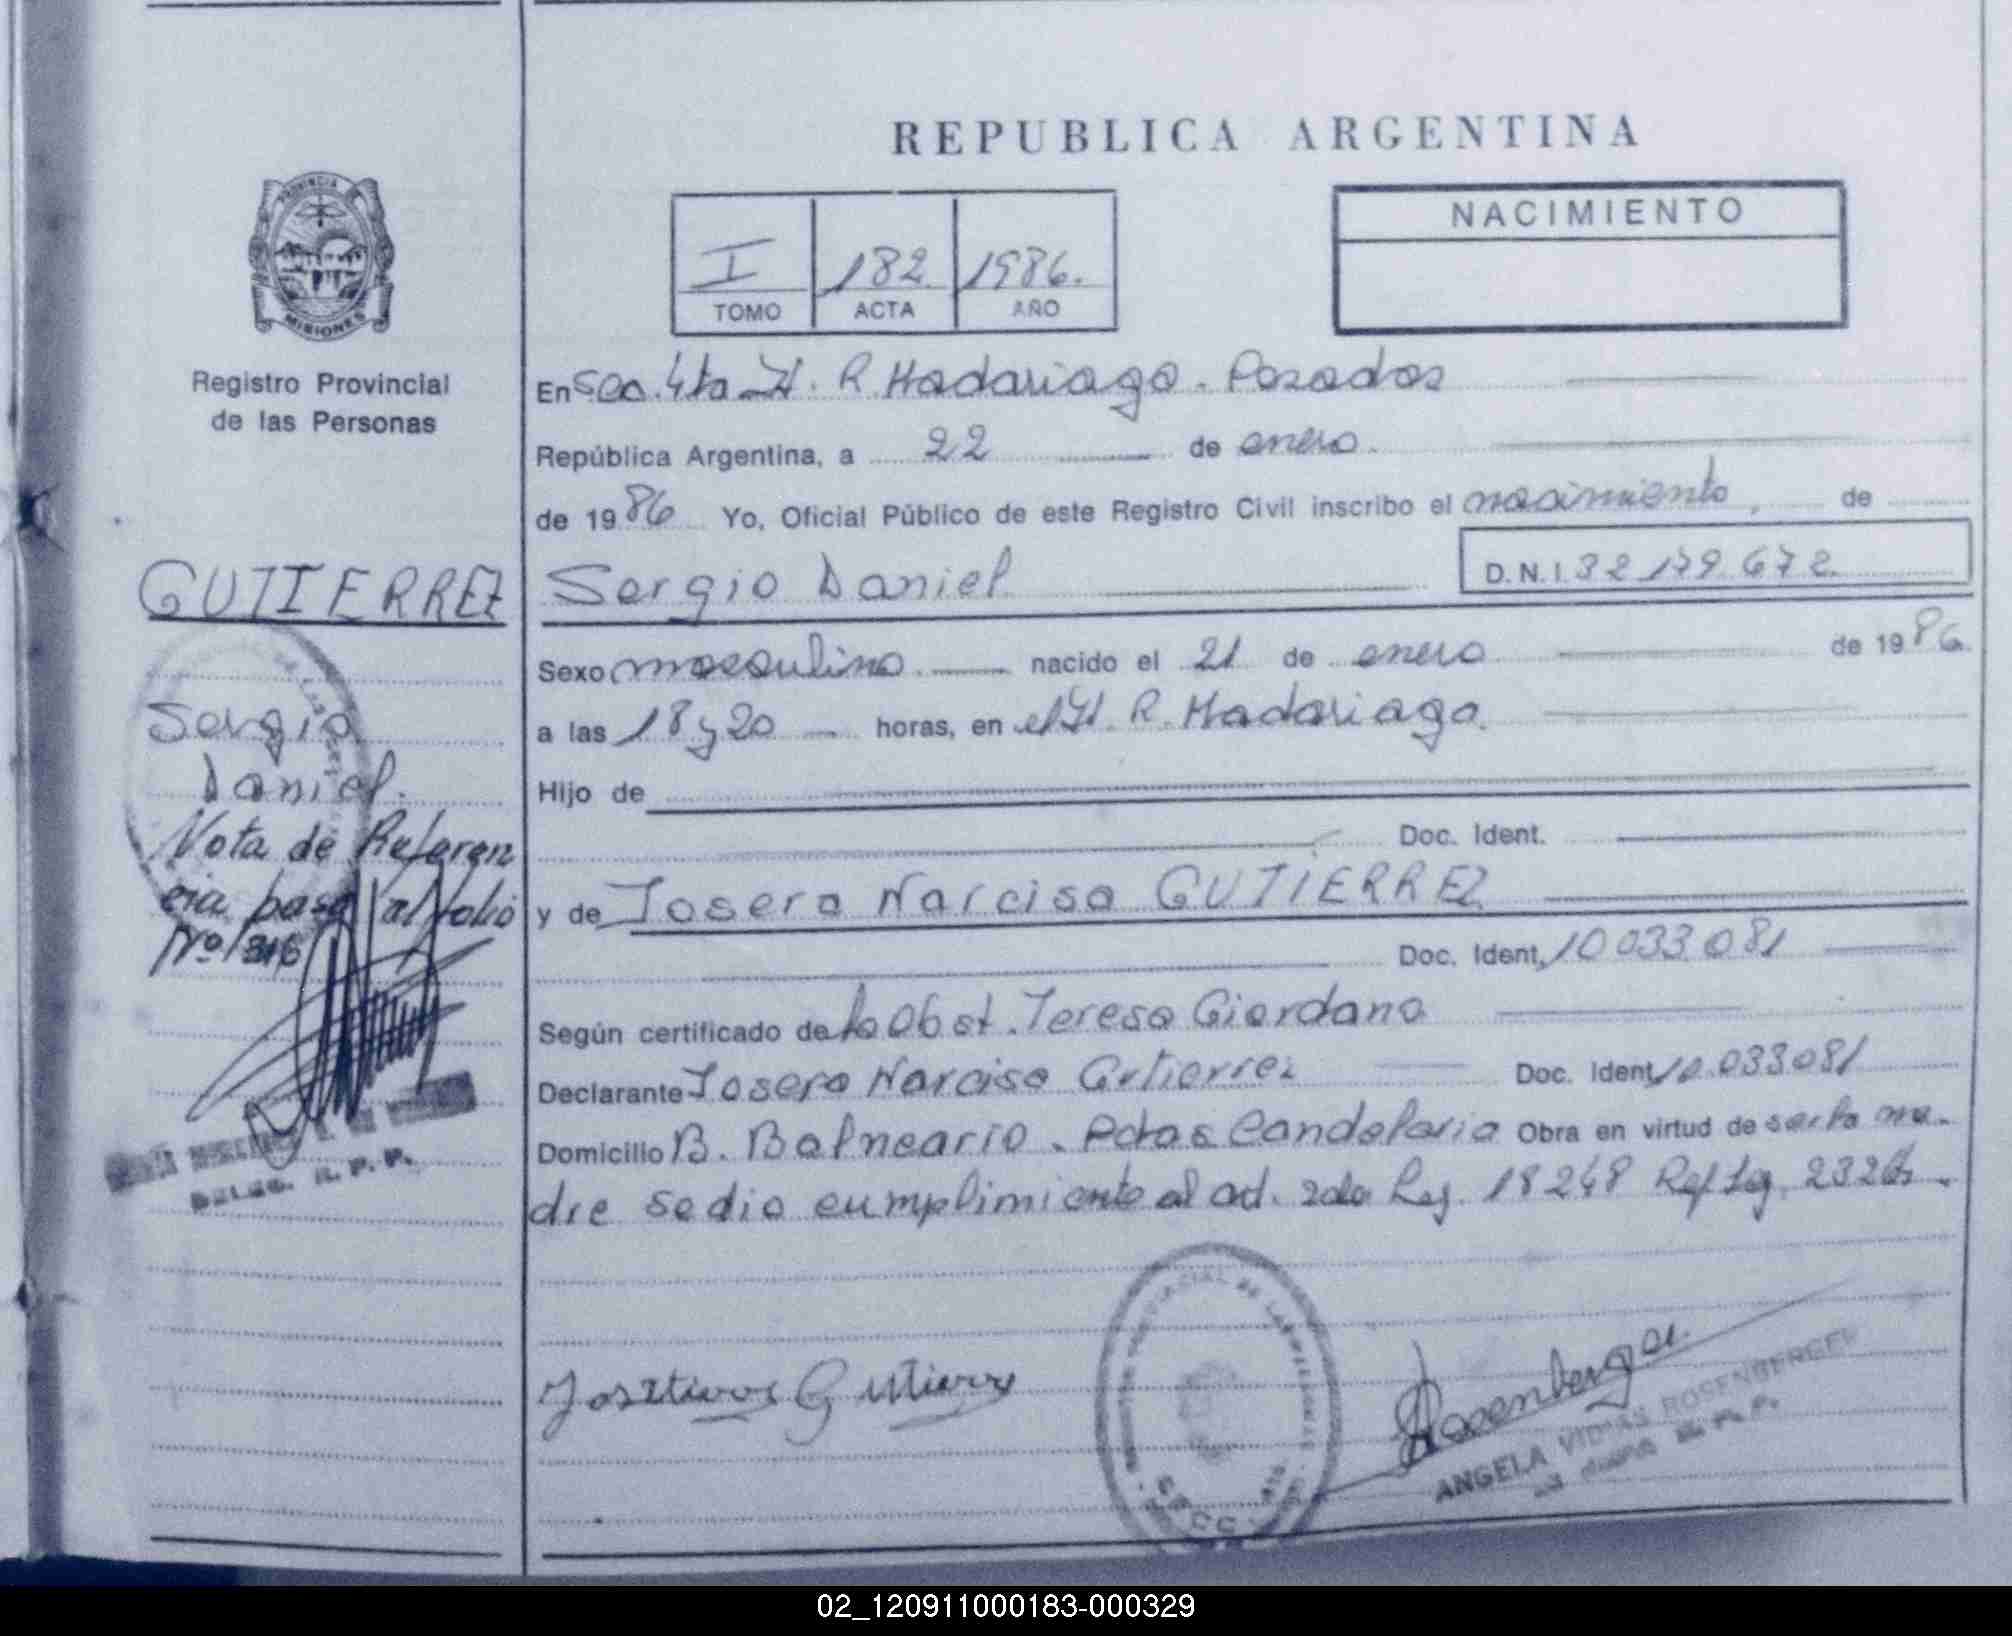 REPUBLICA ARGENTINA
PROVINCIA
MISIONES
Registro Provincial
de las Personas
I 182 1986.
TOMO ACTA AÑO
NACIMIENTO
En Sec. 4ta H. R. Madariaga. Posadas
República Argentina, a 22 de enero.
de 1986 Yo, Oficial Público de este Registro Civil inscribo el nacimiento, de
GUTIERREZ Sergio Daniel D.N.I. 32 179 672
Sexo masculino. nacido el 21 de enero de 1986.
a las 18 y 20 horas, en el H. R. Madariaga.
Hijo de
Doc. Ident.
y de Narciso GUTIERREZ
Doc. Ident. 10 033 081
Según certificado de la Obst. Teresa Giordano
Declarante Narciso Gutierrez Doc. Ident. 10.033081
Domicilio B. Balneario. Candelaria Obra en virtud de
dre se dio cumplimiento al art. 2do Ley. 18248 Ref Leg.
Sergio
Daniel.
Nota de Referen
cia pasa al folio
Nº 316
DELEG. R. P. P.
Gutierrez
Rosenberger
ANGELA ROSENBERGER
02_120911000183-000329